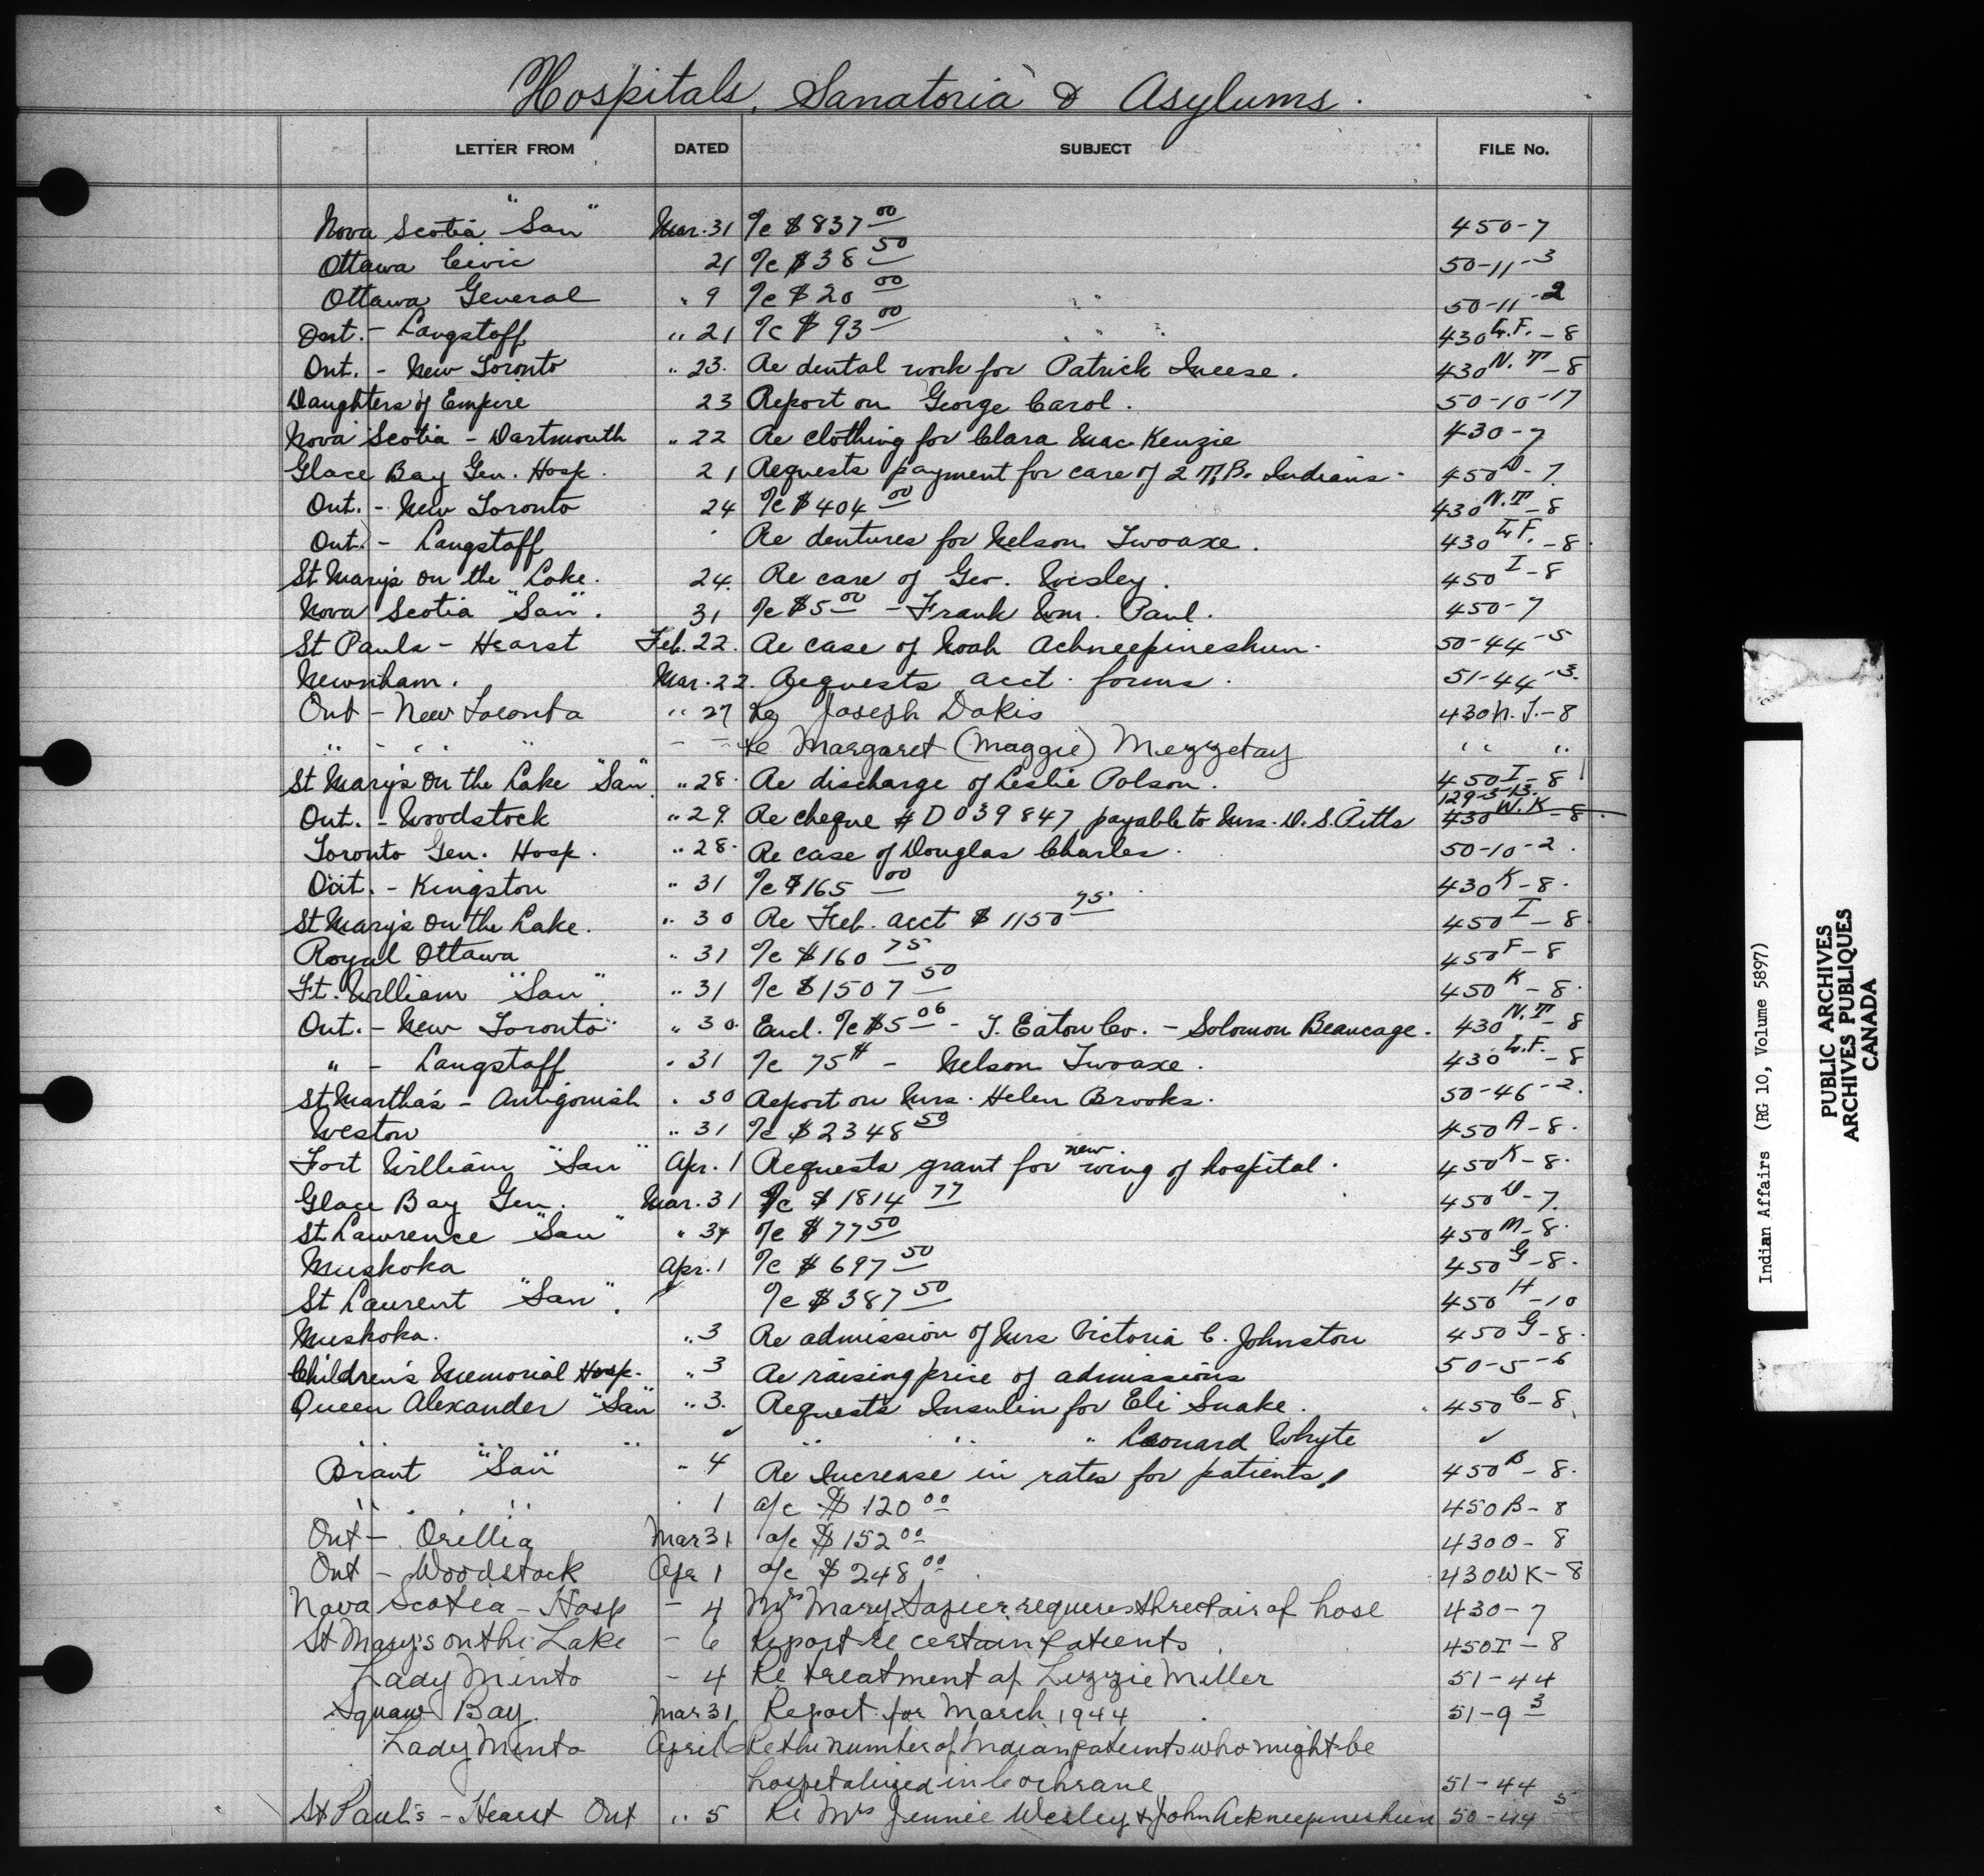 Hospitals, Sanatoria & Asylums.
LETTER FROM DATED SUBJECT FILE No.
Nova Scotia "San" Mar. 31 a/c $837 00 450-7
Ottawa Civic 21 a/c $38 50 50-11-3
Ottawa General " 9 a/c $20 00 50-11-2
Ont. - Langstoff " 21 a/c $93 00 430 L.F. - 8
Ont. - New Toronto " 23. Re dental work for Patrick Ineese. 430 N.T - 8
Daughters of Empire 23 Report on George Carol. 50-10-17
Nova Scotia - Dartmouth " 22 Re clothing for Clara MacKenzie 430-7
Glace Bay Gen. Hosp. 21 Requests payment for care of 2 T.B. Indians. 450 D - 7.
Ont. - New Toronto 24 a/c $404 00 430 N.T - 8
Ont. - Langstaff " Re dentures for Nelson Twoaxe. 430 L.F. - 8.
St Mary's on the Lake. 24. Re care of Geo. Wesley. 450 I - 8
Nova Scotia "San". 31 a/c $5 00 - Frank Wm. Paul. 450-7
St Pauls - Hearst Feb. 22. Re case of Noah Achneepineshun. 50-44-5
Newnham. Mar. 22. Requests acct. forms. 51-44-3.
Ont - New Toronto " 27 Re Joseph Dokis 430 N.T. - 8
" - " " - - Re Margaret (Maggie) Mezzetay " "
St Mary's on the Lake "San". " 28. Re discharge of Leslie Polson. 450 I - 8
129-5-13.
Ont. - Woodstock " 29. Re cheque # D039847 payable to Mrs. D. S. Pitts 430 W.K - 8.
Toronto Gen. Hosp. " 28. Re case of Douglas Charles. 50-10-2.
Ont. - Kingston " 31 a/c $165 00 430 K - 8.
St Mary's on the Lake. " 30 Re Feb. acct $1150 75 450 I - 8.
Royal Ottawa " 31 a/c $160 75 450 F - 8
Ft. William "San". " 31 a/c $1507 50 450 K - 8.
Ont. - New Toronto " 30. Encl. a/c $5 06 - T. Eaton Co. - Solomon Beaucage. 430 N.T - 8
" - Langstaff " 31 a/c 75¢ - Nelson Twoaxe. 430 L.F. - 8
St Martha's - Antigonish " 30 Report on Mrs. Helen Brooks. 50-46-2.
Weston " 31 a/c $2348 50 450 A - 8.
Fort William "San" Apr. 1 Requests grant for new wing of hospital. 450 K - 8.
Glace Bay Gen. Mar. 31 a/c $1814 77 450 D - 7.
St Lawrence "San" " 31 a/c $77 50 450 M - 8.
Muskoka Apr. 1 a/c $697 50 450 G - 8.
St Laurent "San". " a/c $387 50 450 H - 10
Muskoka. " 3 Re admission of Mrs Victoria C. Johnston 450 G - 8.
Children's Memorial Hosp. " 3 Re raising price of admissions 50-5-6
Queen Alexander "San" " 3. Requests Insulin for Eli Snake. 450 C - 8.
" " " " " Leonard Whyte "
Brant "San" " 4 Re Increase in rates for patients. 450 B - 8.
" " " 1 a/c $120 00 450B - 8
Ont - Orillia Mar 31 a/c $152 00 430O - 8
Ont - Woodstock Apr 1 a/c $248 00 430WK - 8
Nova Scotia - Hosp - 4 Mrs Mary requires three pair of hose 430-7
St Mary's on the Lake - 6 Report re certain patients 450I - 8
Lady Minto - 4 Re treatment of Lizzie Miller 51-44
Squaw Bay. Mar 31 Report for March 1944 51-9 3
Lady Minto April 6 Re the number of Indian patients who might be
hospitalized in Cochrane 51-44
St Paul's - Hearst Ont " 5 Re Mrs Jennie Wesley & John Ackneepineshun 50-44 5
Indian Affairs (RG 10, Volume 5897)
PUBLIC ARCHIVES
ARCHIVES PUBLIQUES
CANADA